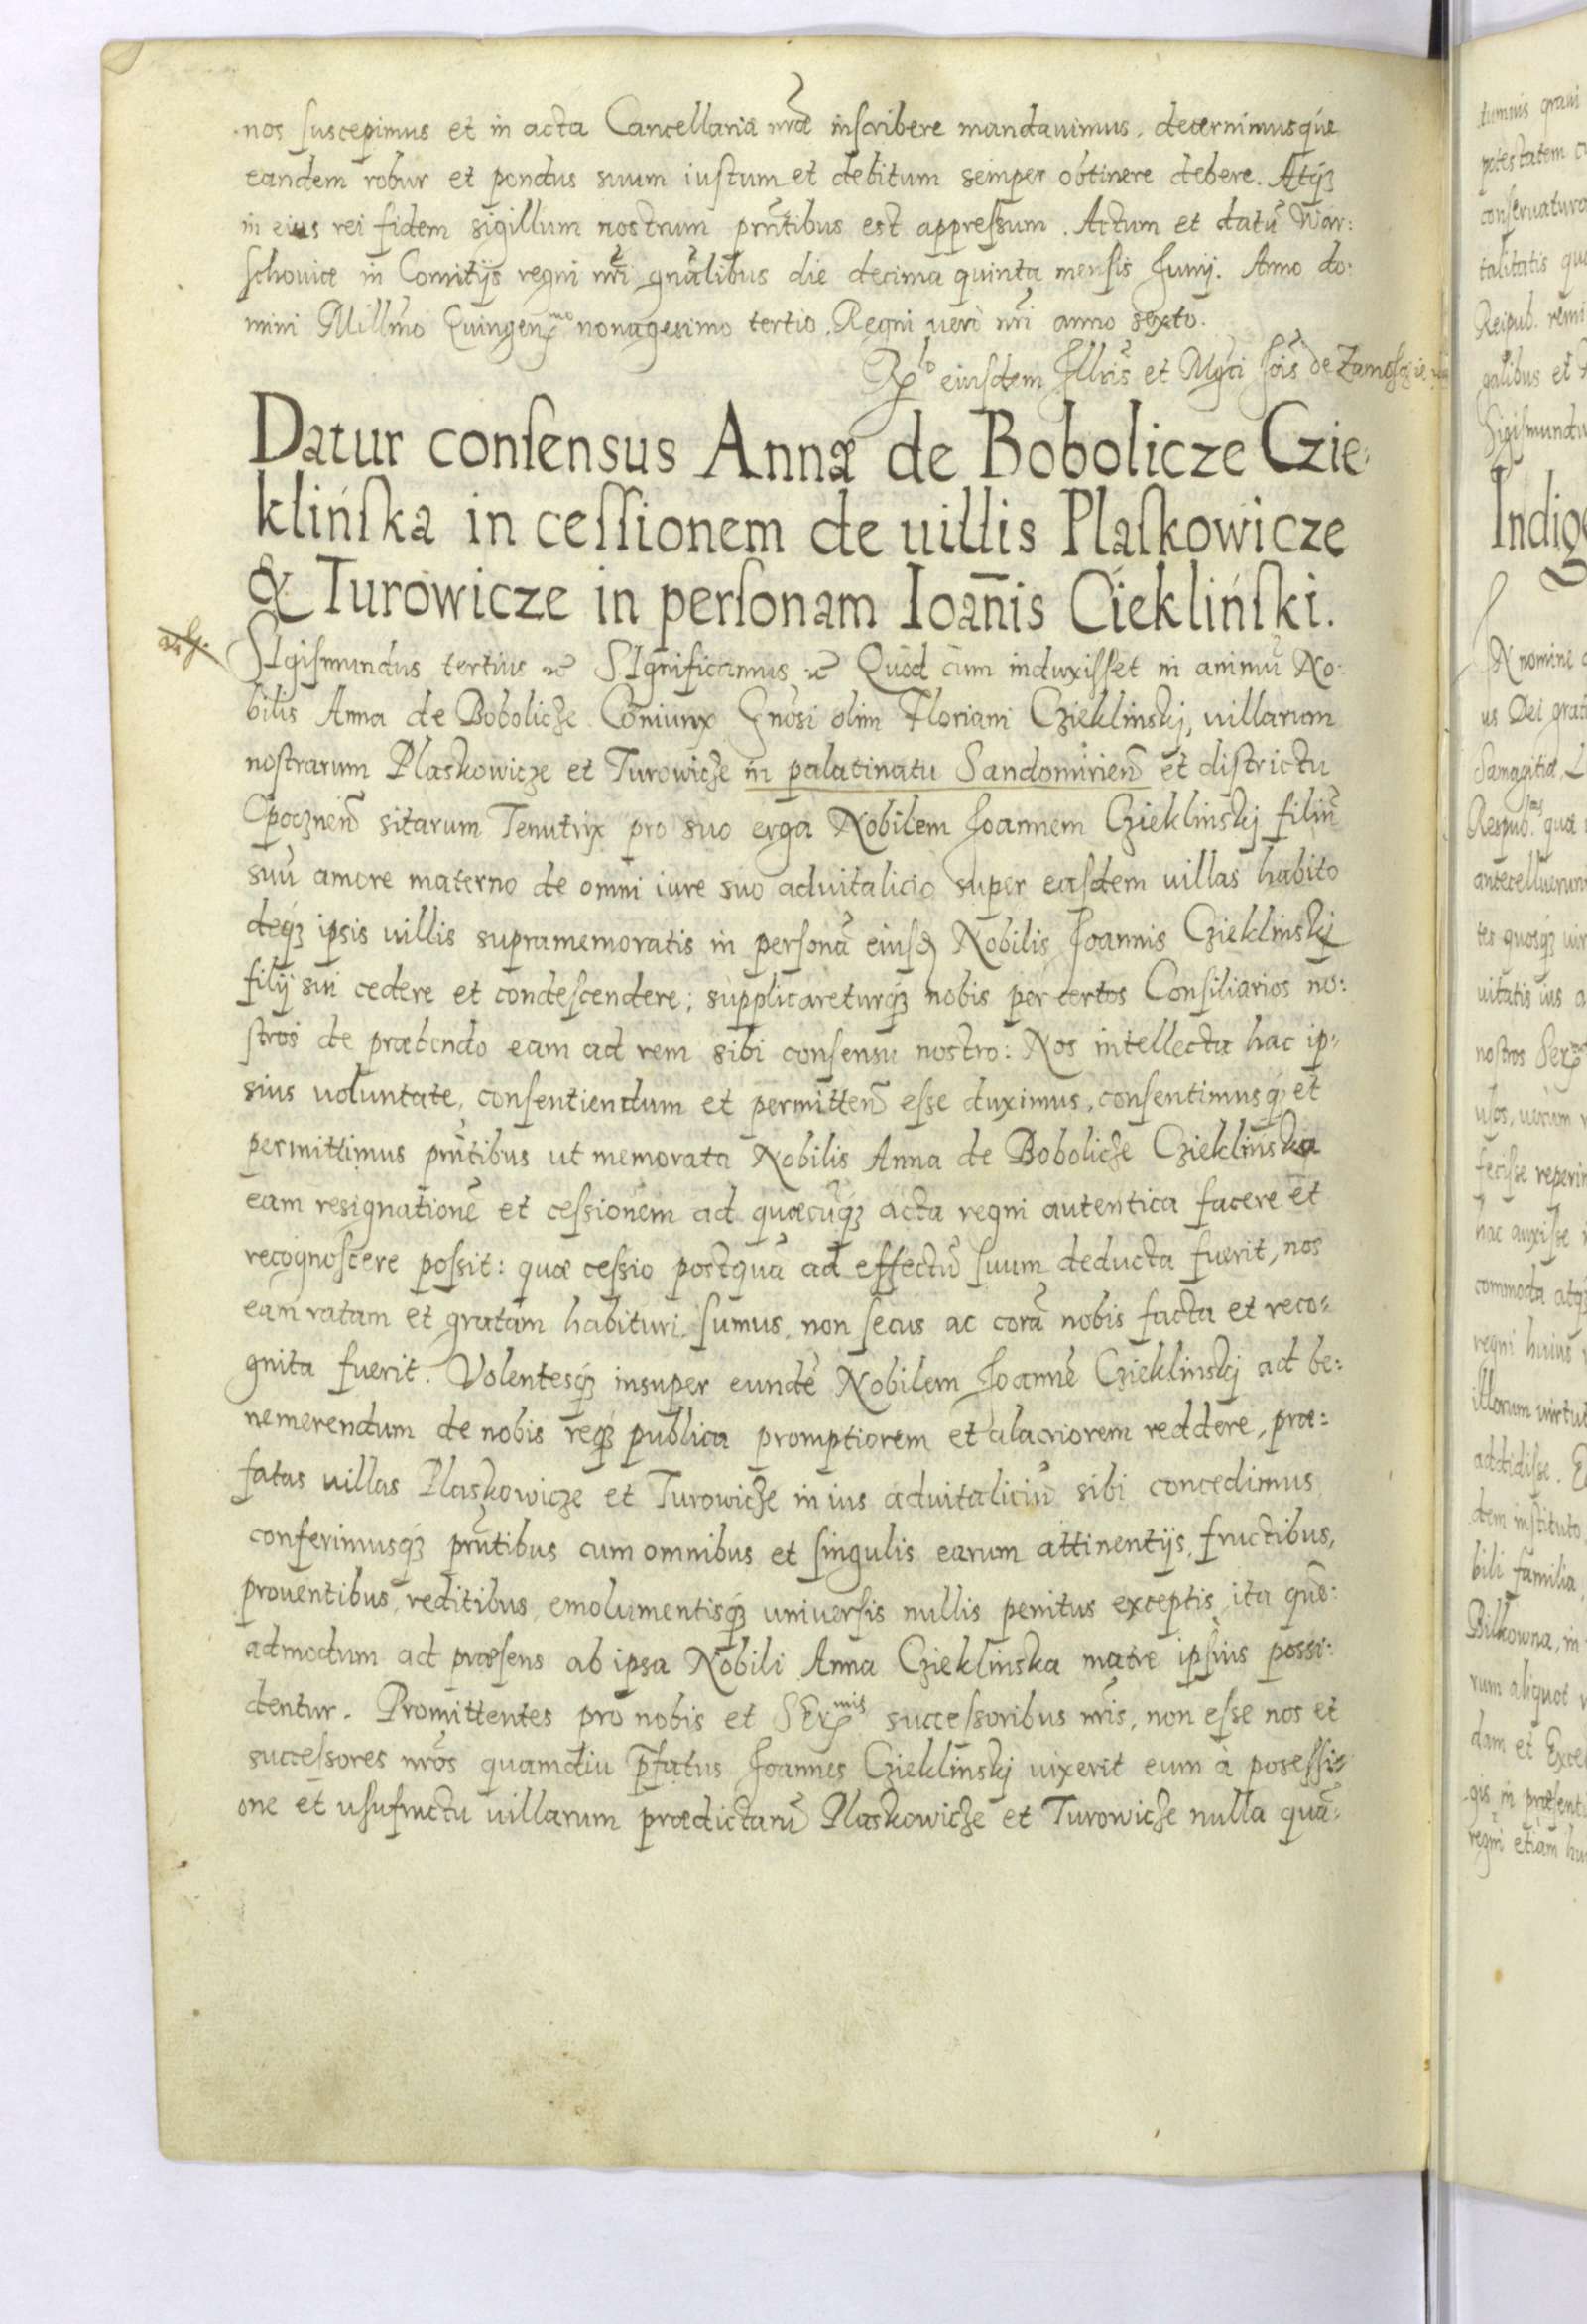 nos suscepimus et in acta Cancellariæ nr̃æ inscribere mandauimus, decernimusque
eandem robur et pondus suum iustum et debitum semper obtinere debere. Atq3
in eius rei fidem sigillum nostrum pr̃ntibus est appressum. Actum et datũ War:
schouiæ in Comitijs regni nr̃i gñalibus die decima quinta mensis Junij. Anno do:
mini Millm̃o Quingenmo nonagesimo tertio. Regni uero nr̃i anno sexto.
eiusdem Illris et Mgci Jois de Zamoscie
Datur consensus Annæ de Bobolicze Czie:
klińska in cessionem de uillis Plaskowicze
& Turowicze in personam Ioañis Ciekliński.
SIgismundus tertius etc SIgnificamus etc Quod cum induxisset in animũ No:
bilis Anna de Bobolicze Coniunx Gnosi olim Floriani Czieklinskj, uillarum
nostrarum Plaskowicze et Turowicze in palatinatu Sandomirieñ et districtu
Opoczneñ sitarum Tenutrix pro suo erga Nobilem Joannem Czieklinskj filiũ
suũ amore materno de omni iure suo aduitalicio super easdem uillas habito
deq3 ipsis uillis supramemoratis in personã eiusd Nobilis Joannis Czieklinskj
filij sui cedere et condescendere; supplicareturq3 nobis per certos Consiliarios no:
stros de præbendo eam ad rem sibi consensu nostro: Nos intellecta hac ip"
sius uoluntate, consentiendum et permitteñ esse duximus, consentimusq3 et
permittimus pr̃ntibus ut memorata Nobilis Anna de Bobolicze Czieklinska
eam resignationẽ et cessionem ad quæcũq3 acta regni autentica facere et
recognoscere possit: quæ cessio postquã ad effectũ suum deducta fuerit, nos
eam ratam et gratam habituri sumus, non secus ac corã nobis facta et reco=
gnita fuerit. Volentesq3 insuper eundẽ Nobilem Joannẽ Czieklinskj ad be:
nemerendum de nobis req3 publica promptiorem et alacriorem reddere, præ:
fatas uillas Plaskowicze et Turowicze in ius aduitaliciũ sibi concedimus
conferimusq3 pr̃ntibus cum omnibus et singulis earum attinentijs, fructibus,
prouentibus, reditibus, emolumentisq3 uniuersis nullis penitus exceptis, ita quẽ:
admodum ad præsens ab ipsa Nobili Anna Czieklinska matre ipsius possi:
dentur. Promittentes pro nobis et SErmis successoribus nr̃is, non esse nos et
successores nr̃os quamdiu p̃fatus Joannes Czieklinskj uixerit eum à posessi=
one et usufructu uillarum prædictarũ Plaskowicze et Turowicze nulla quã=